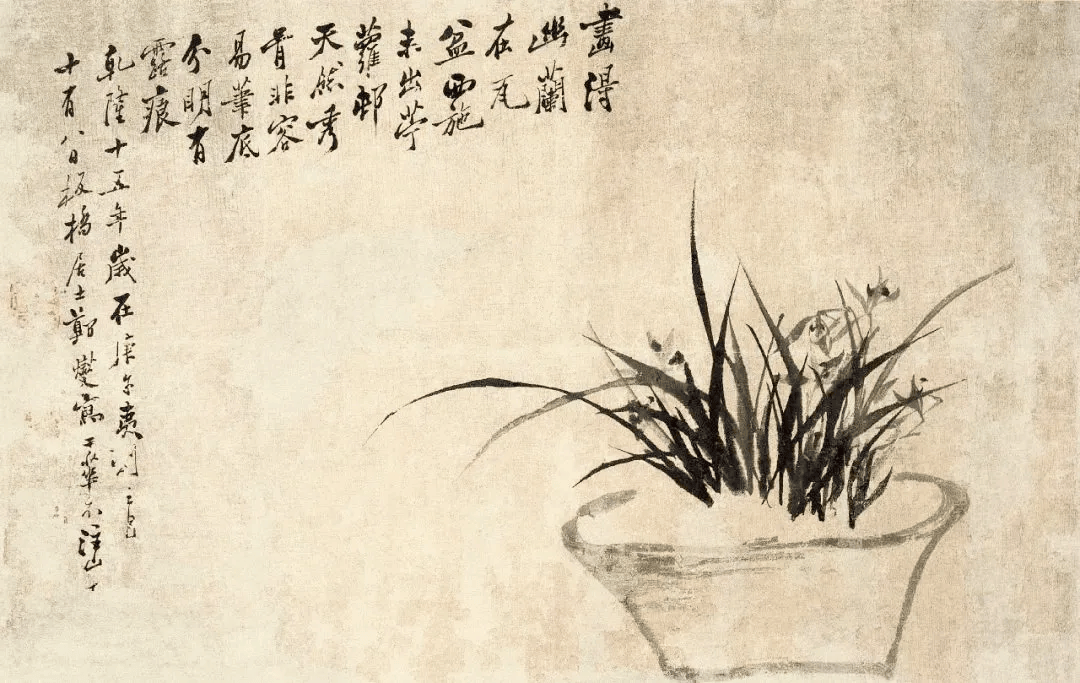 畫得
幽蘭
在瓦
盆西施
未出苧
蘿邨
天然秀
骨非容
易筆底
分明有
露痕
乾隆十五年歲在庚午夷則之
十有八日板橋居士鄭燮寫于華不注山下